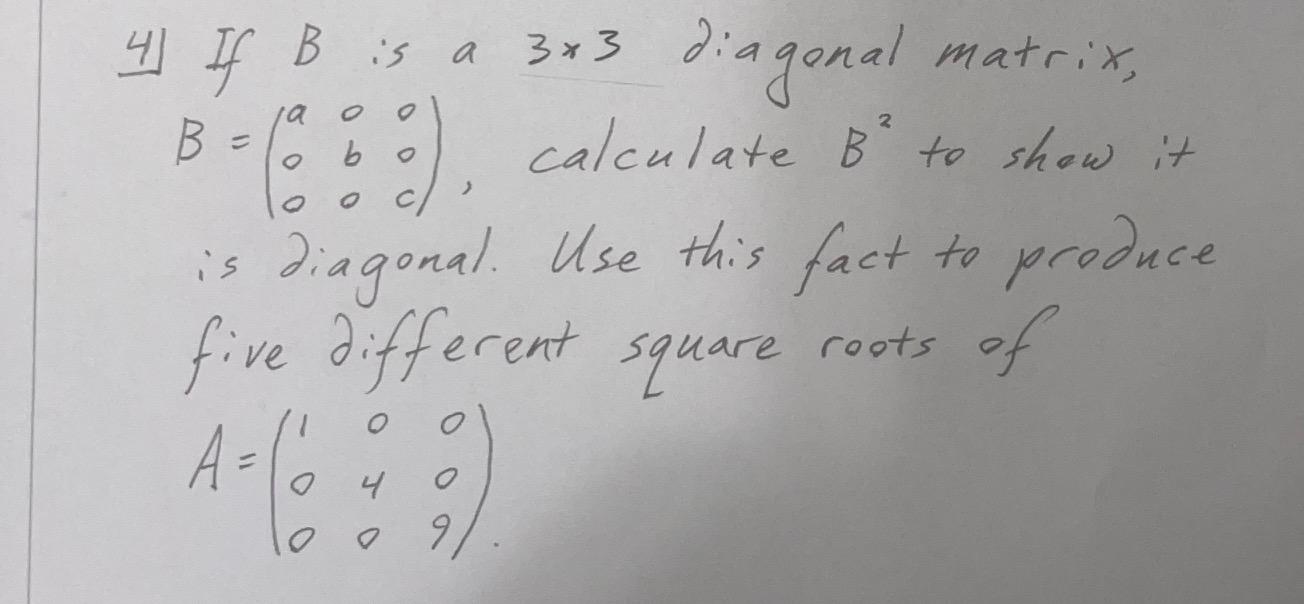 4] If B is a 3×3 diagonal matrix,
B = (a 0 0
0 b 0
0 0 c), calculate B² to show it
is diagonal. Use this fact to produce
five different square roots of
A = (1 0 0
0 4 0
0 0 9).